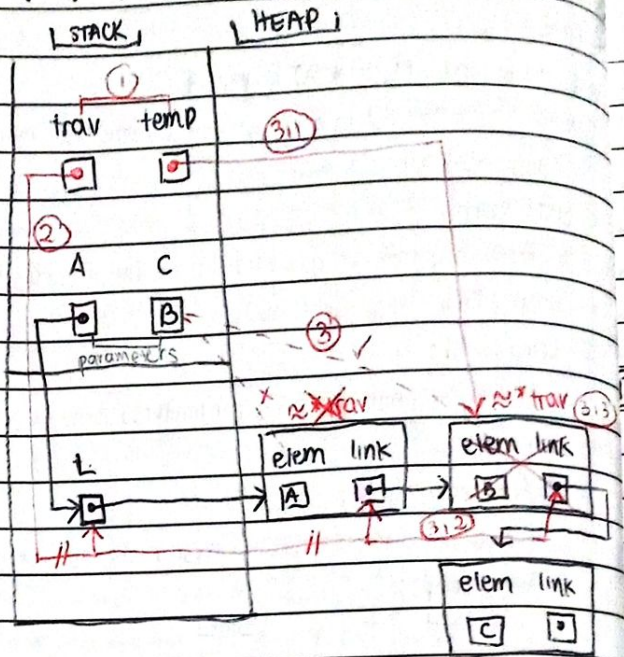 STACK HEAP
1
trav temp
3,1
2
A C
B
3
parameters
x ≈ *trav ≈ *trav 3,3
elem link elem link
L
A B
3,2
elem link
C